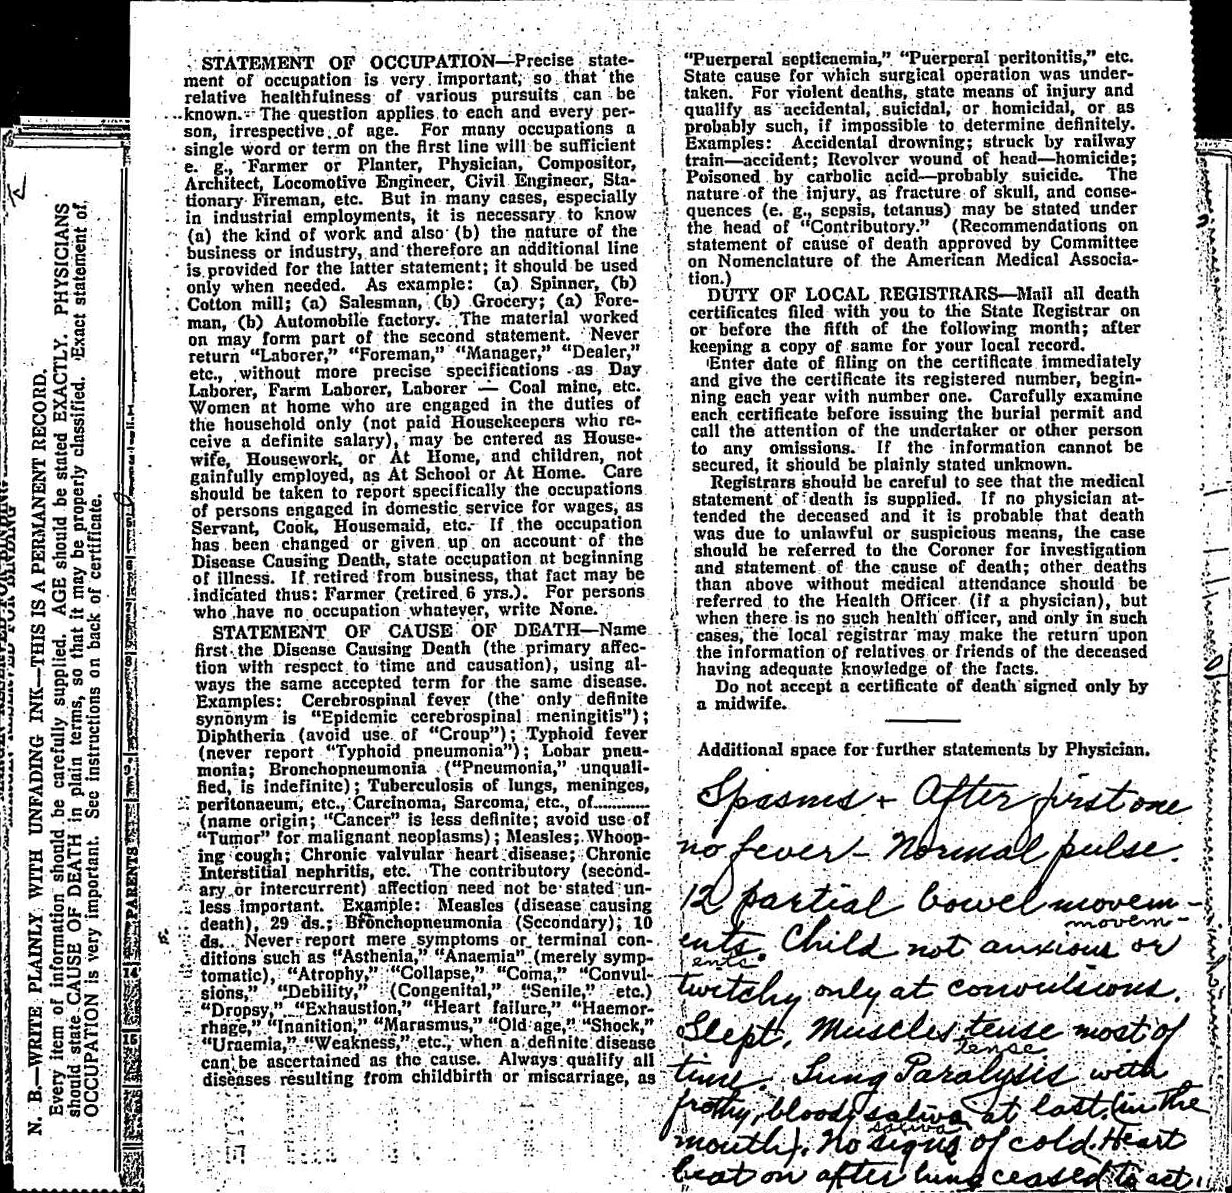 N. B.—WRITE PLAINLY WITH UNFADING INK—THIS IS A PERMANENT RECORD.
Every item of information should be carefully supplied. AGE should be stated EXACTLY. PHYSICIANS
should state CAUSE OF DEATH in plain terms, so that it may be properly classified. Exact statement of
OCCUPATION is very important. See instructions on back of certificate.
PARENTS
14
15
STATEMENT OF OCCUPATION—Precise state-
ment of occupation is very important, so that the
relative healthfulness of various pursuits can be
known. The question applies to each and every per-
son, irrespective of age. For many occupations a
single word or term on the first line will be sufficient
e. g., Farmer or Planter, Physician, Compositor,
Architect, Locomotive Engineer, Civil Engineer, Sta-
tionary Fireman, etc. But in many cases, especially
in industrial employments, it is necessary to know
(a) the kind of work and also (b) the nature of the
business or industry, and therefore an additional line
is provided for the latter statement; it should be used
only when needed. As example: (a) Spinner, (b)
Cotton mill; (a) Salesman, (b) Grocery; (a) Fore-
man, (b) Automobile factory. The material worked
on may form part of the second statement. Never
return "Laborer," "Foreman," "Manager," "Dealer,"
etc., without more precise specifications as Day
Laborer, Farm Laborer, Laborer — Coal mine, etc.
Women at home who are engaged in the duties of
the household only (not paid Housekeepers who re-
ceive a definite salary), may be entered as House-
wife, Housework, or At Home, and children, not
gainfully employed, as At School or At Home. Care
should be taken to report specifically the occupations
of persons engaged in domestic service for wages, as
Servant, Cook, Housemaid, etc. If the occupation
has been changed or given up on account of the
Disease Causing Death, state occupation at beginning
of illness. If retired from business, that fact may be
indicated thus: Farmer (retired 6 yrs.). For persons
who have no occupation whatever, write None.
STATEMENT OF CAUSE OF DEATH—Name
first the Disease Causing Death (the primary affec-
tion with respect to time and causation), using al-
ways the same accepted term for the same disease.
Examples: Cerebrospinal fever (the only definite
synonym is "Epidemic cerebrospinal meningitis");
Diphtheria (avoid use of "Croup"); Typhoid fever
(never report "Typhoid pneumonia"); Lobar pneu-
monia; Bronchopneumonia ("Pneumonia," unquali-
fied, is indefinite); Tuberculosis of lungs, meninges,
peritonaeum, etc., Carcinoma, Sarcoma, etc., of...........
(name origin; "Cancer" is less definite; avoid use of
"Tumor" for malignant neoplasms); Measles; Whoop-
ing cough; Chronic valvular heart disease; Chronic
Interstitial nephritis, etc. The contributory (second-
ary or intercurrent) affection need not be stated un-
less important. Example: Measles (disease causing
death), 29 ds.; Bronchopneumonia (Secondary); 10
ds. Never report mere symptoms or terminal con-
ditions such as "Asthenia," "Anaemia" (merely symp-
tomatic), "Atrophy," "Collapse," "Coma," "Convul-
sions," "Debility," (Congenital," "Senile," etc.)
"Dropsy," "Exhaustion," "Heart failure," "Haemor-
rhage," "Inanition," "Marasmus," "Old age," "Shock,"
"Uraemia," "Weakness," etc., when a definite disease
can be ascertained as the cause. Always qualify all
diseases resulting from childbirth or miscarriage, as
"Puerperal septicaemia," "Puerperal peritonitis," etc.
State cause for which surgical operation was under-
taken. For violent deaths, state means of injury and
qualify as accidental, suicidal, or homicidal, or as
probably such, if impossible to determine definitely.
Examples: Accidental drowning; struck by railway
train—accident; Revolver wound of head—homicide;
Poisoned by carbolic acid—probably suicide. The
nature of the injury, as fracture of skull, and conse-
quences (e. g., sepsis, tetanus) may be stated under
the head of "Contributory." (Recommendations on
statement of cause of death approved by Committee
on Nomenclature of the American Medical Associa-
tion.)
DUTY OF LOCAL REGISTRARS—Mail all death
certificates filed with you to the State Registrar on
or before the fifth of the following month; after
keeping a copy of same for your local record.
Enter date of filing on the certificate immediately
and give the certificate its registered number, begin-
ning each year with number one. Carefully examine
each certificate before issuing the burial permit and
call the attention of the undertaker or other person
to any omissions. If the information cannot be
secured, it should be plainly stated unknown.
Registrars should be careful to see that the medical
statement of death is supplied. If no physician at-
tended the deceased and it is probable that death
was due to unlawful or suspicious means, the case
should be referred to the Coroner for investigation
and statement of the cause of death; other deaths
than above without medical attendance should be
referred to the Health Officer (if a physician), but
when there is no such health officer, and only in such
cases, the local registrar may make the return upon
the information of relatives or friends of the deceased
having adequate knowledge of the facts.
Do not accept a certificate of death signed only by
a midwife.
Additional space for further statements by Physician.
Spasms + After first one
no fever - Normal pulse.
12 partial bowel movem-
movem-
ents. Child not anxious or
ents.
twitchy only at convulsions.
Slept. Muscles tense most of
tense
time. Lung Paralysis with
frothy, bloody saliva at last. (in the
saliva
mouth). No signs of cold. Heart
beat on after lung ceased to act.